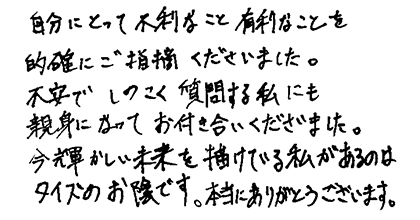 自分にとって不利なこと有利なことを
的確にご指摘くださいました。
不安でしつこく質問する私にも
親身になってお付き合いくださいました。
今輝かしい未来を描けている私があるのは
タイズのお陰です。本当にありがとうございます。